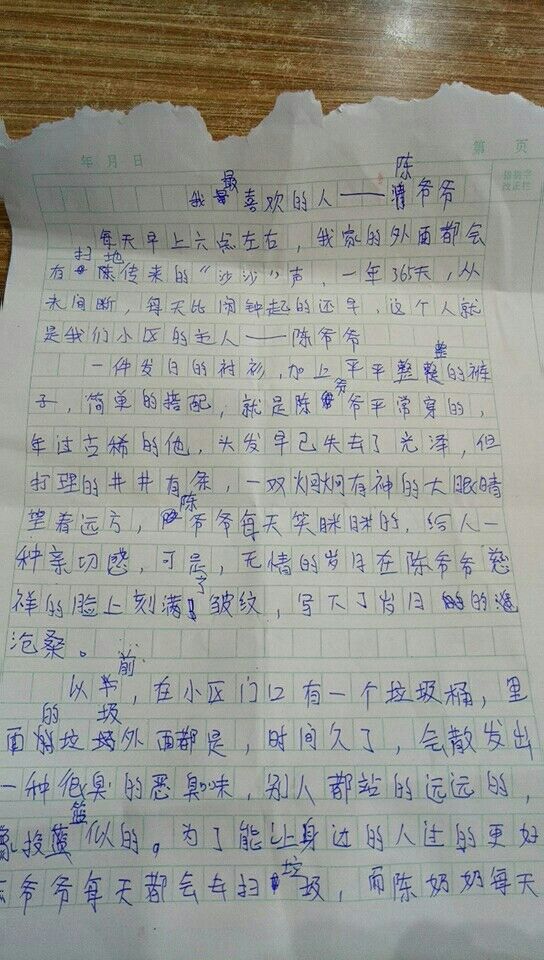 年 月 日
第 页
我最喜欢的人——陈爷爷
每天早上六点左右，我家的外面都会
有扫地传来的“沙沙”声，一年365天，从
未间断，每天比闹钟起的还早，这个人就
是我们小区的主人——陈爷爷
一件发白的衬衫，加上平平整整的裤
子，简单的搭配，就是陈爷爷平常穿的，
年过古稀的他，头发早已失去了光泽，但
打理的井井有条，一双炯炯有神的大眼睛
望着远方，陈爷爷每天笑眯眯的，给人一
种亲切感，可是，无情的岁月在陈爷爷慈
祥的脸上刻满了皱纹，写下了岁月的
沧桑。
以前，在小区门口有一个垃圾桶，里
面的垃圾外面都是，时间久了，会散发出
一种很臭的恶臭味，别人都站的远远的，
投篮似的。为了能让身边的人过的更好
爷爷每天都会去扫垃圾，而陈奶奶每天